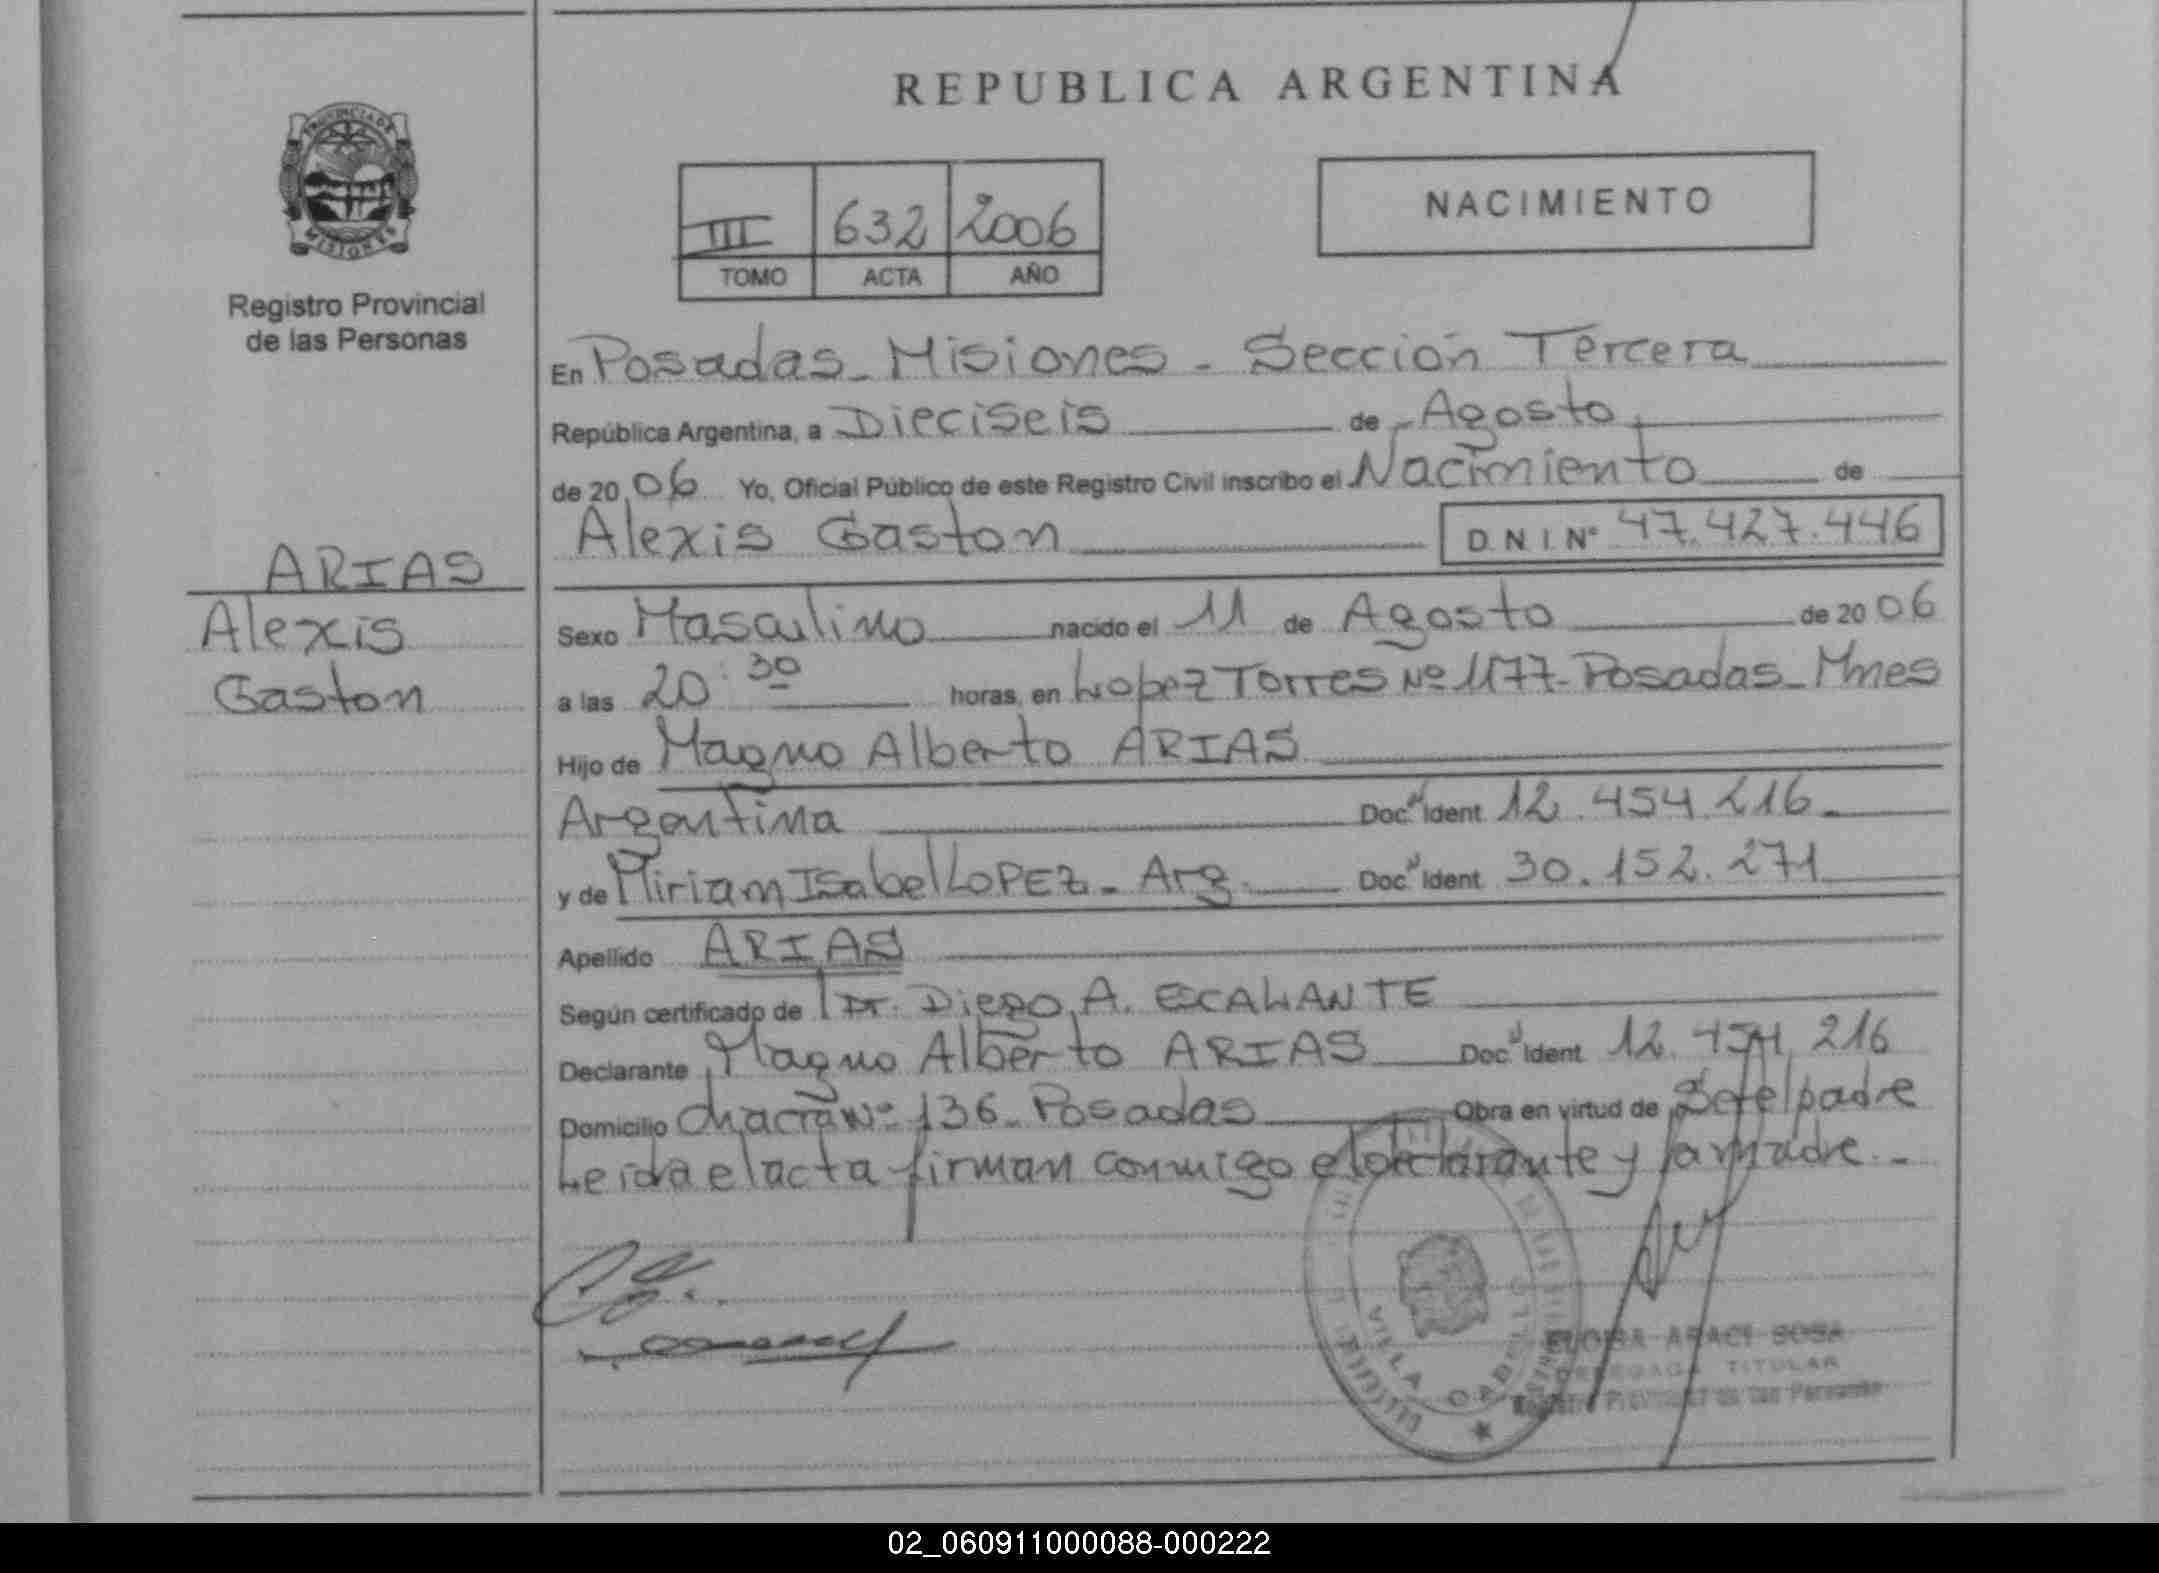 REPUBLICA ARGENTINA
PROVINCIA DE
MISIONES
Registro Provincial
de las Personas
III 632 2006
TOMO ACTA AÑO
NACIMIENTO
ARIAS
Alexis
Gaston
En Posadas - Misiones - Sección Tercera
República Argentina, a Dieciseis de Agosto
de 2006 Yo, Oficial Público de este Registro Civil inscribo el Nacimiento de
Alexis Gaston D.N.I. Nº 47.427.446
Sexo Masculino nacido el 11 de Agosto de 2006
a las 20:30 horas, en Lopez Torres Nº 1177 - Posadas - Mnes
Hijo de Magno Alberto ARIAS
Argentina Doc. Ident 12.454.216
y de Miriam Isabel LOPEZ - Arg. Doc. Ident 30.152.271
Apellido ARIAS
Según certificado de Dr. Diego A. ESCALANTE
Declarante Magno Alberto ARIAS Doc. Ident 12.454.216
Domicilio chacra Nº 136 - Posadas Obra en virtud de Ser el padre
Leida el acta firman conmigo el declarante y la madre. -
VILLA
TITULAR
Registro Provincial de las Personas
02_060911000088-000222